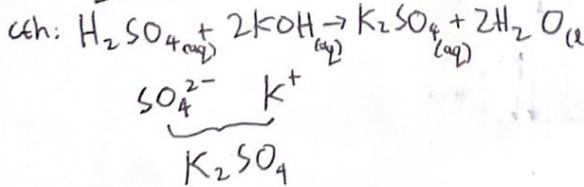 cth: H₂SO₄(aq) + 2KOH(aq) → K₂SO₄(aq) + 2H₂O(l
SO₄²⁻ K⁺
K₂SO₄